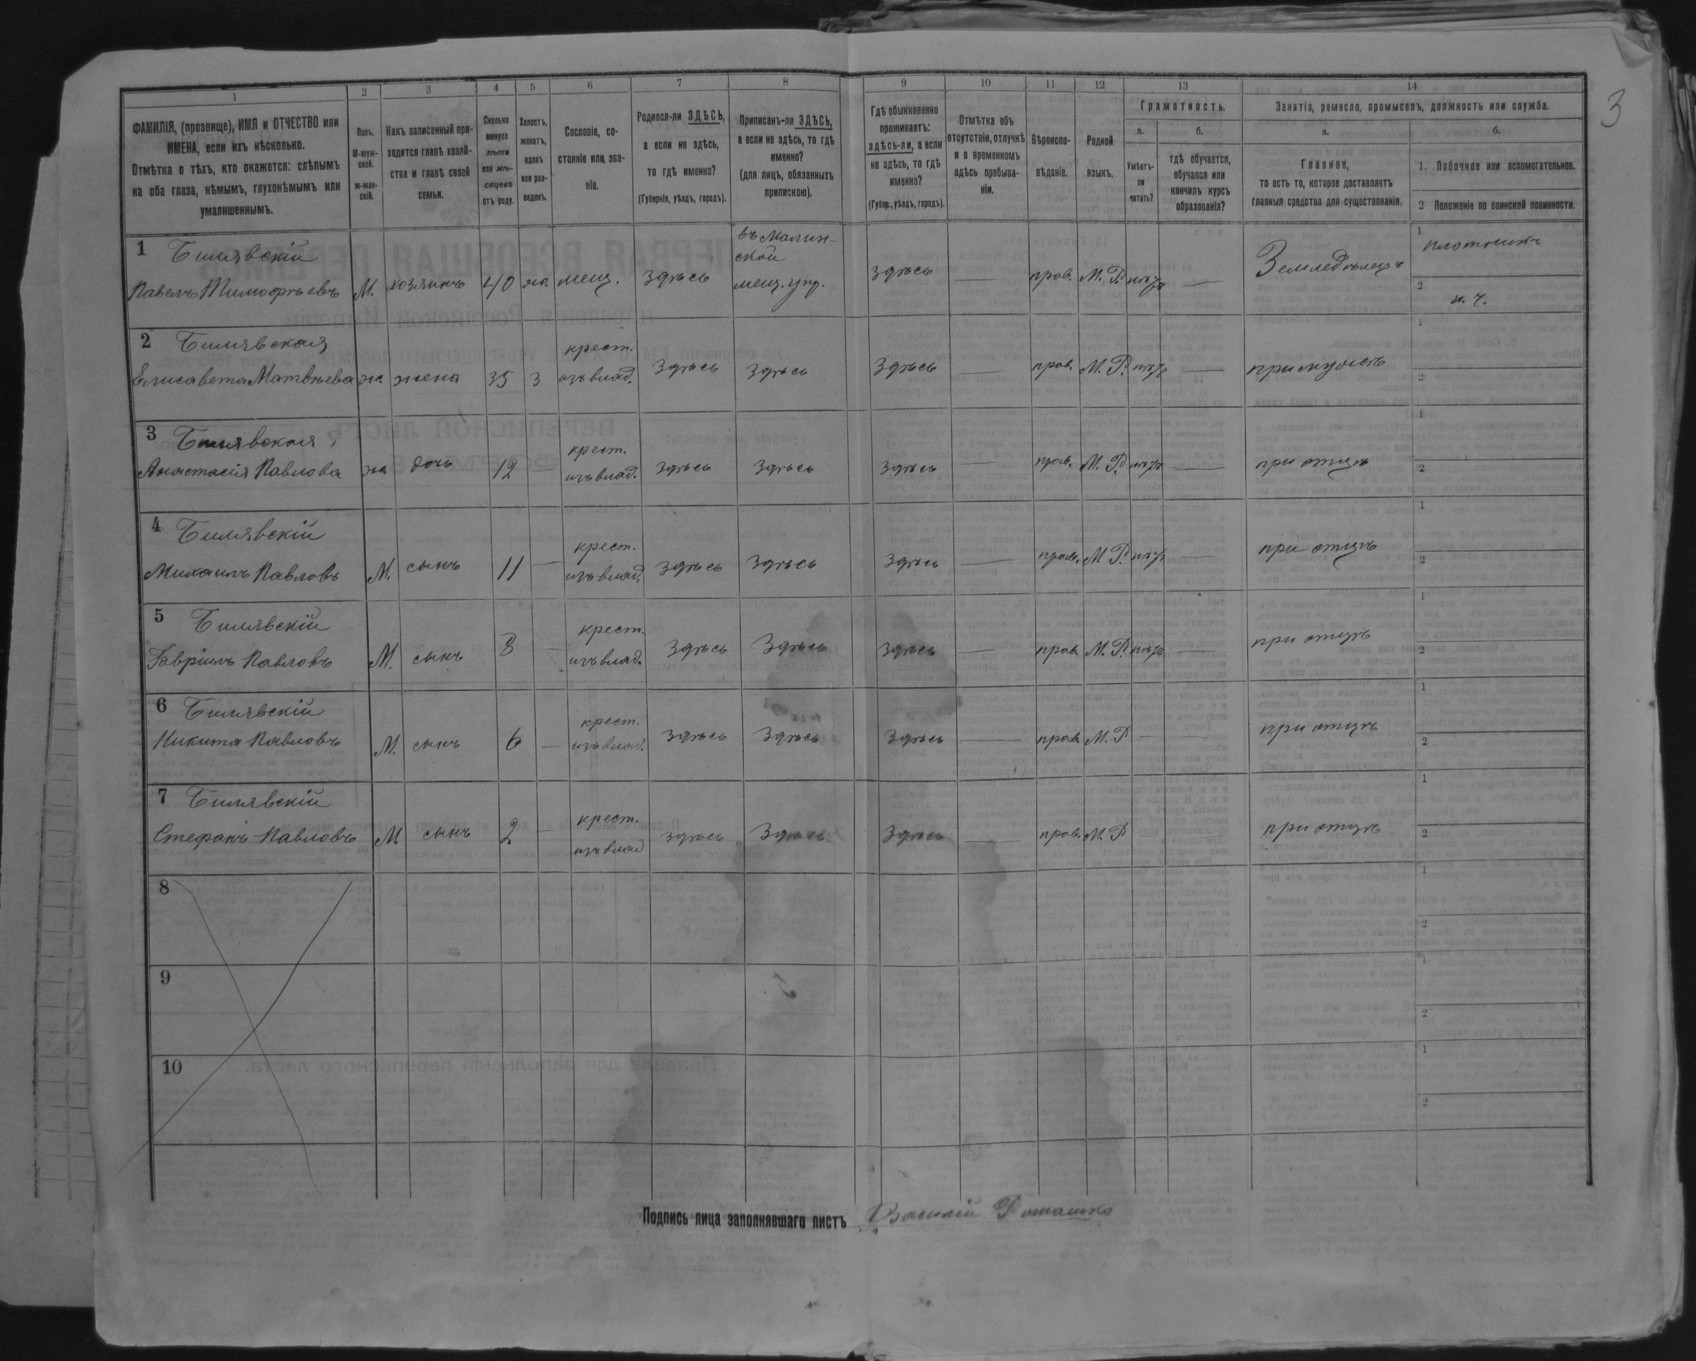 3
1 2 3 4 5 6 7 8 9 10 11 12 13 14
ФАМИЛІЯ, (прозвище), ИМЯ и ОТЧЕСТВО или
ИМЕНА, если ихъ нѣсколько.
Отмѣтка о тѣхъ, кто окажется: слѣпымъ
на оба глаза, нѣмымъ, глухонѣмымъ или
умалишеннымъ.
Полъ.
М-муж-
ской.
ж-жен-
скій.
Какъ записанный при-
ходится главѣ хозяй-
ства и главѣ своей
семьи.
Сколько
минуло
лѣтъ
или мѣ-
сяцевъ
отъ роду.
Холостъ,
женатъ,
вдовъ
или раз-
веденъ.
Сословіе, со-
стояніе или зва-
ніе.
Родился-ли ЗДѢСЬ,
а если не здѣсь,
то гдѣ именно?
(Губернія, уѣздъ, городъ).
Приписанъ-ли ЗДѢСЬ,
а если не здѣсь, то гдѣ
именно?
(для лицъ, обязанныхъ
припискою).
Гдѣ обыкновенно
проживаетъ:
здѣсь-ли, а если
не здѣсь, то гдѣ
именно?
(Губер., уѣздъ, городъ).
Отмѣтка объ
отсутствіи, отлучкѣ
и о временномъ
здѣсь пребыва-
ніи.
Вѣроиспо-
вѣданіе.
Родной
языкъ.
Грамотность.
а.
Умѣетъ-
ли
читать?
б.
гдѣ обучается,
обучался или
кончилъ курсъ
образованія?
Занятіе, ремесло, промыселъ, должность или служба.
а.
Главное,
то есть то, которое доставляетъ
главныя средства для существованія.
б.
1. Побочное или вспомогательное.
2 Положеніе по воинской повинности.
1 Билявскій въ Малин-
ской 1 плотникъ
Павелъ Тимофѣевъ М. хозяинъ 40 ж. мещ. здѣсь мещ. упр. здѣсь — прав. М. Р. нѣтъ — Земледѣлецъ
2 н. ч.
2 Билявская крест. 1
Елисавета Матвѣева ж жена 35 з изъ влад. здѣсь здѣсь здѣсь — прав. М. Р. нѣтъ — при мужѣ 2
3 Билявская, крест. 1
Анастасія Павлова ж дочь 12 — изъ влад. здѣсь здѣсь здѣсь — прав. М. Р. нѣтъ — при отцѣ 2
4 Билявскій крест. 1
Михаилъ Павловъ М. сынъ 11 — изъ влад. здѣсь здѣсь здѣсь — прав. М Р. нѣтъ — при отцѣ 2
5 Билявскій крест. 1
Гавріилъ Павловъ М. сынъ 8 — изъ влад. здѣсь здѣсь здѣсь — прав. М. Р. нѣтъ — при отцѣ 2
6 Билявскій крест. 1
Никита Павловъ М. сынъ 6 — изъ влад. здѣсь здѣсь здѣсь — прав. М. Р — — при отцѣ 2
7 Билявскій крест. 1
Стефанъ Павловъ М сынъ 2 — изъ влад здѣсь здѣсь здѣсь — прав. М. Р — — при отцѣ 2
8 1
2
9 1
2
10 1
2
Подпись лица заполнявшаго листъ Василій Ромашко